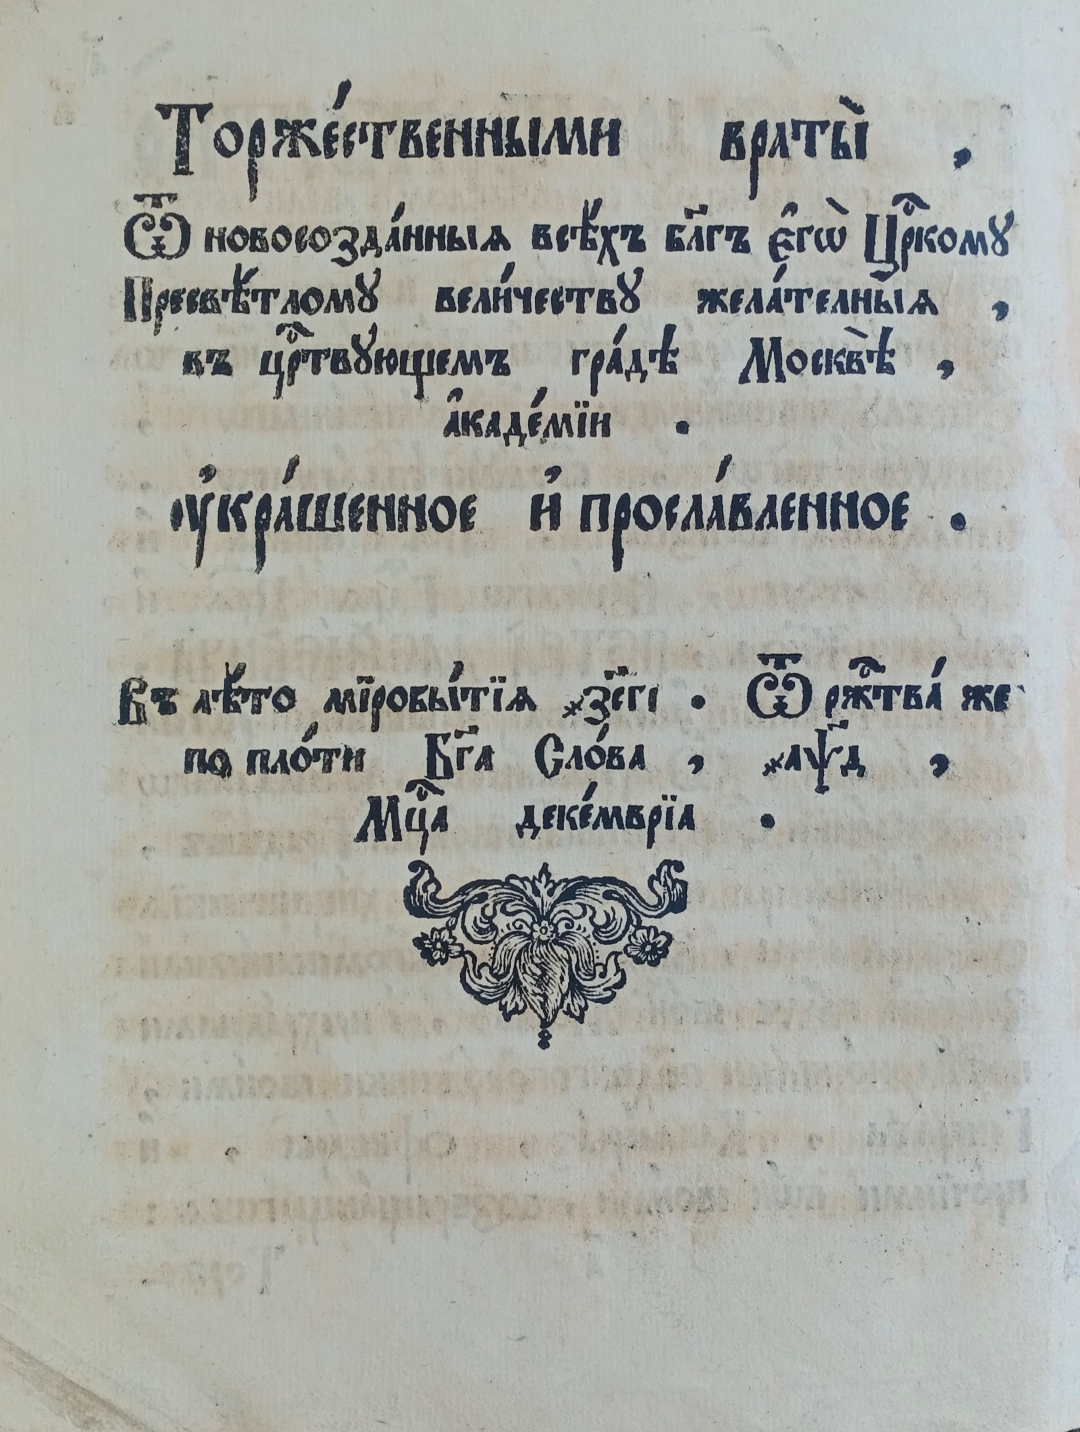 Торже́ственными враты̀ ,
Ѿ новосозда́нныя всѣ́хъ бл҃гъ є҆гѡ̀ Цр҇кому
Пресвѣ́тлому вели́честву жела́телныѧ ,
въ цр҇твующемъ гра́дѣ Москвѣ̀ ,
а҆кадемїи .
оу҆кра́шенное и҆ просла́вленное .
Въ лѣ́то мїробы́тїѧ ҂зс҃гі . Ѿ рж҇тва́ же
по пло́ти Бг҃а Сло́ва , ҂аѱ҃д ,
Мц҇а деке́мврїа .